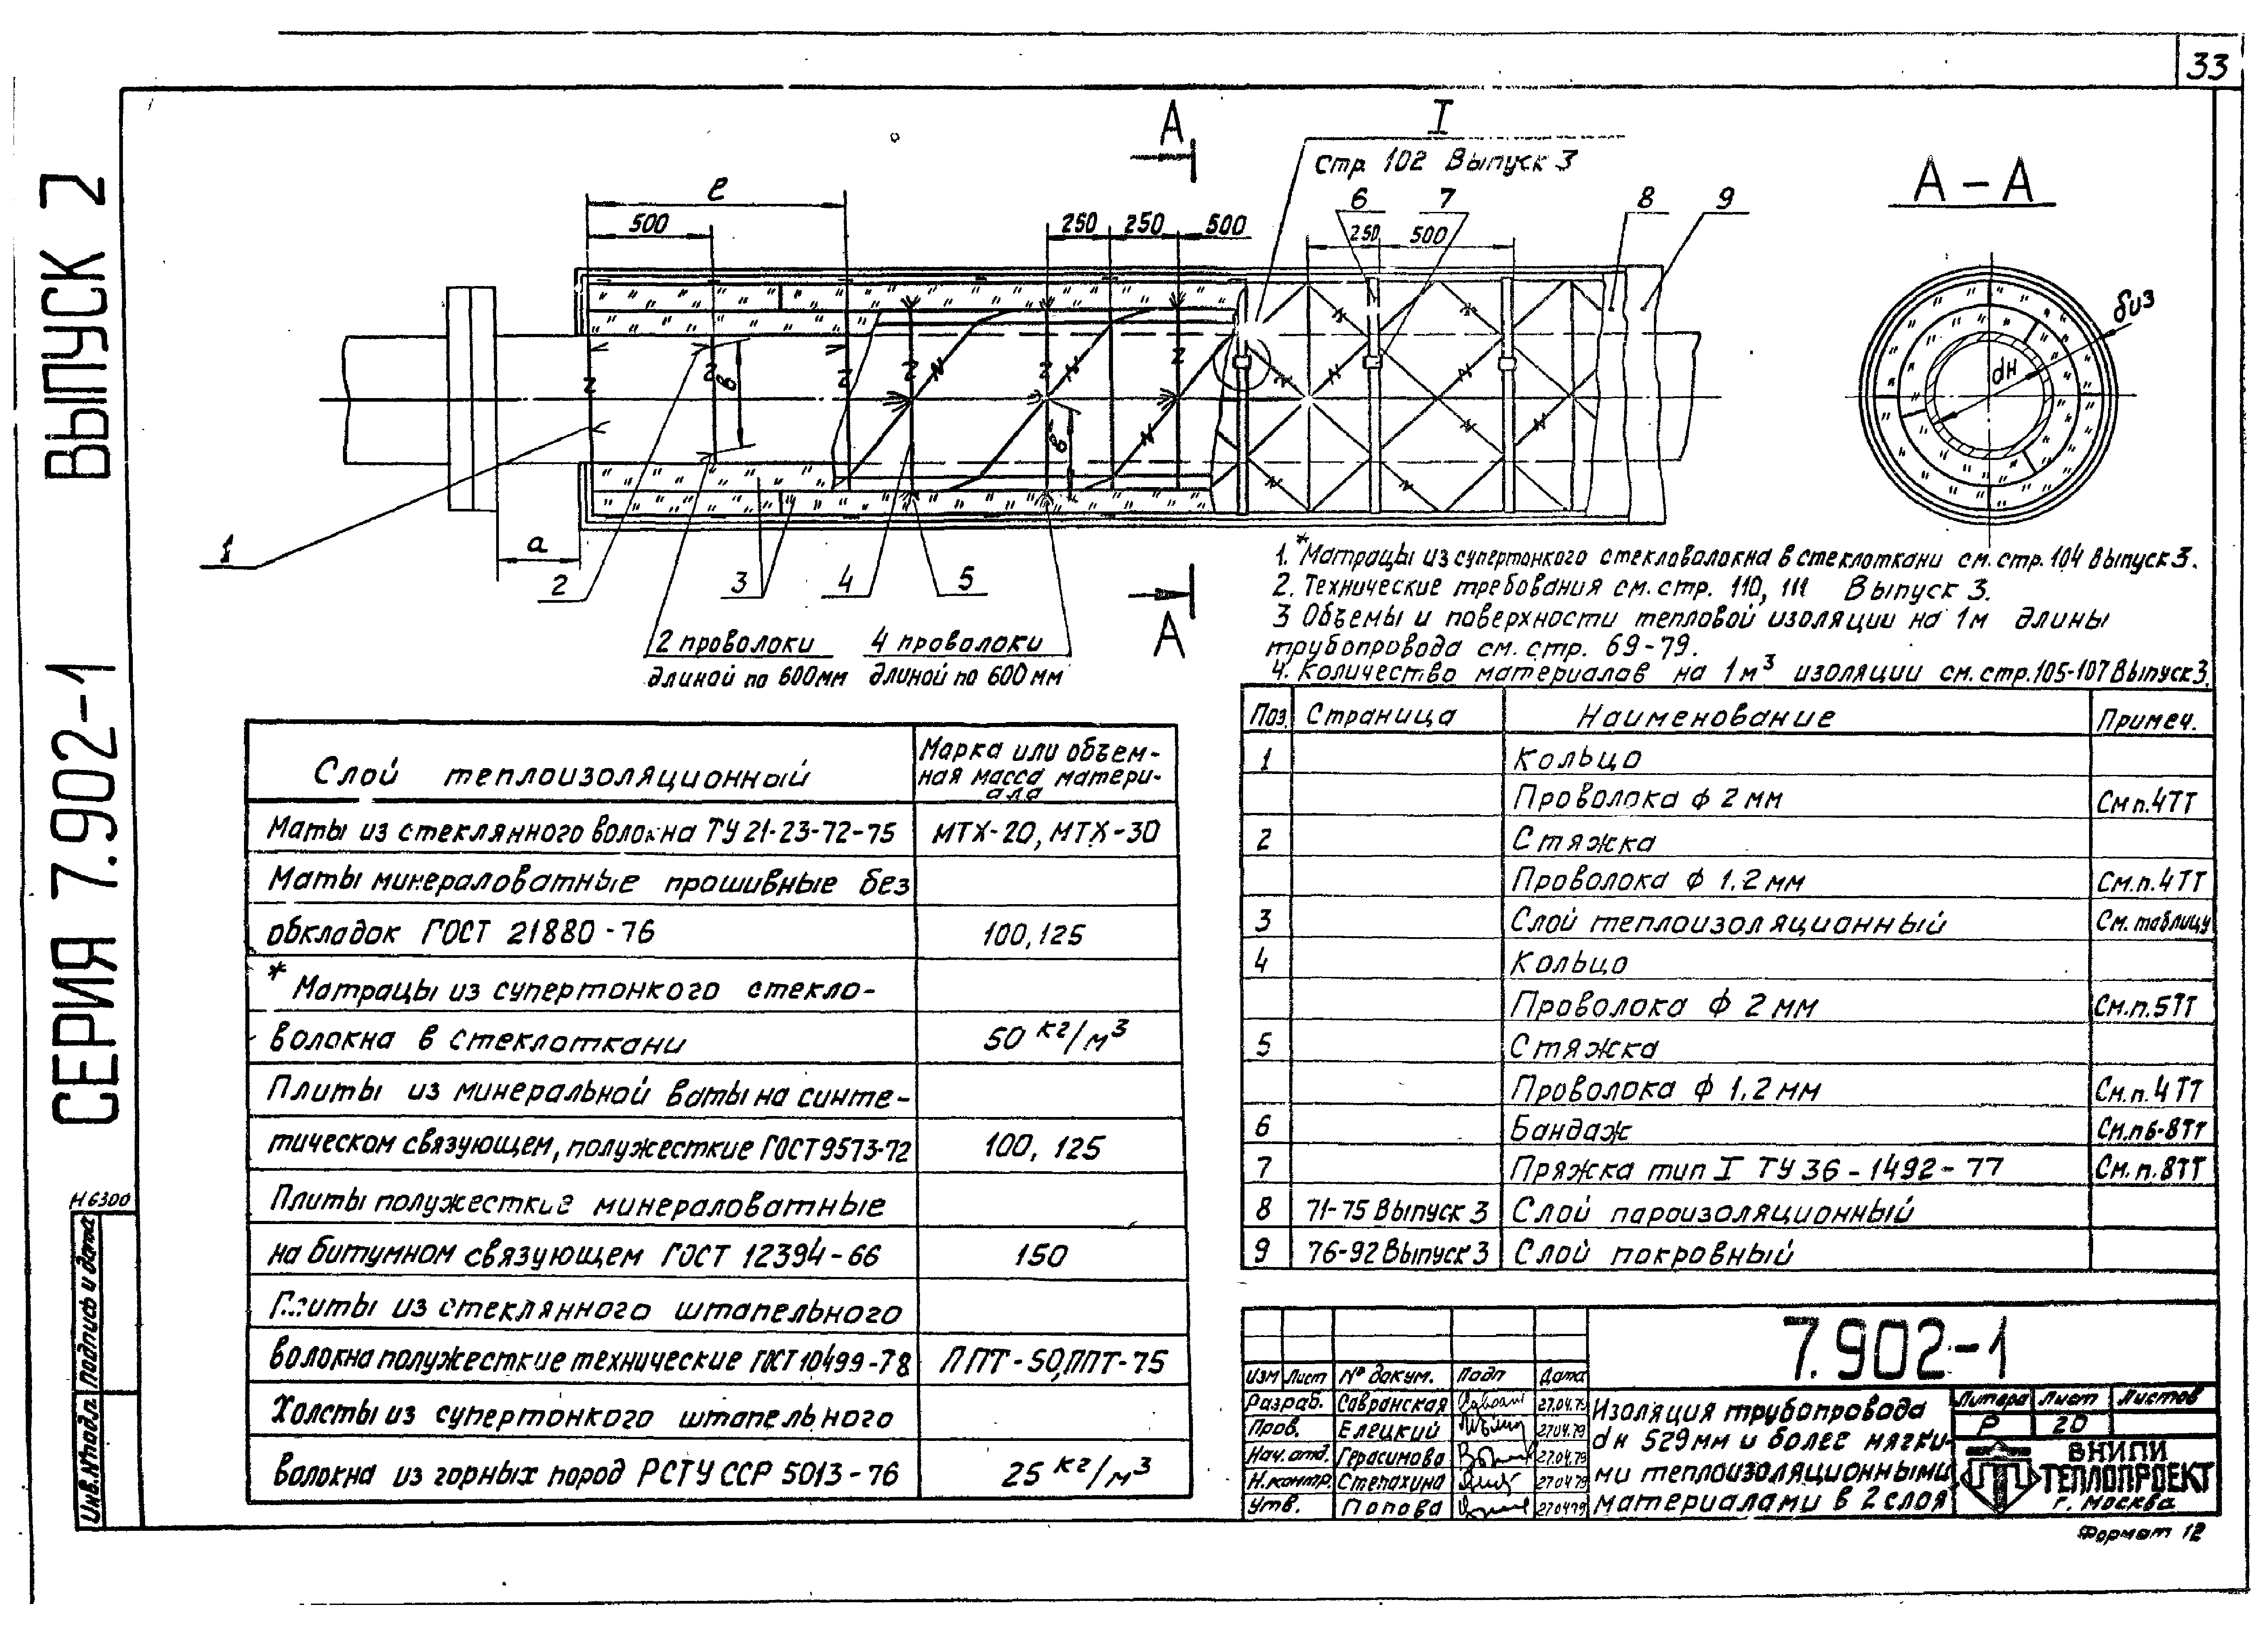 33
СЕРИЯ 7.902-1 ВЫПУСК 2
А
I
Стр. 102 Выпуск 3
А-А
е
500
250
250
500
6
7
250
500
8
9
δиз
dн
в
в
а
1
2
3
4
5
А
2 проволоки
длиной по 600мм
4 проволоки
длиной по 600 мм
1.*Матрацы из супертонкого стекловолокна в стеклоткани см. стр. 104 Выпуск 3.
2. Технические требования см. стр. 110, 111 Выпуск 3.
3 Объемы и поверхности тепловой изоляции на 1м длины
трубопровода см. стр. 69-79.
4. Количество материалов на 1м³ изоляции см. стр. 105-107 Выпуск 3.
Слой теплоизоляционный
Марка или объем-
ная масса матери-
ала
Маты из стеклянного волокна ТУ 21-23-72-75 МТХ-20, МТХ-30
Маты минераловатные прошивные без
обкладок ГОСТ 21880-76 100, 125
* Матрацы из супертонкого стекло-
волокна в стеклоткани 50 кг/м³
Плиты из минеральной ваты на синте-
тическом связующем, полужесткие ГОСТ 9573-72 100, 125
Плиты полужесткие минераловатные
на битумном связующем ГОСТ 12394-66 150
Плиты из стеклянного штапельного
волокна полужесткие технические ГОСТ 10499-78 ППТ-50, ППТ-75
Холсты из супертонкого штапельного
волокна из горных пород РСТ УССР 5013-76 25 кг/м³
Поз. Страница Наименование Примеч.
1 Кольцо
Проволока ф 2 мм См п. 4ТТ
2 Стяжка
Проволока ф 1.2 мм См. п. 4ТТ
3 Слой теплоизоляционный См. таблицу
4 Кольцо
Проволока ф 2 мм См. п. 5ТТ
5 Стяжка
Проволока ф 1.2 мм См. п. 4ТТ
6 Бандаж См. п 6-8ТТ
7 Пряжка тип I ТУ 36-1492-77 См. п. 8ТТ
8 71-75 Выпуск 3 Слой пароизоляционный
9 76-92 Выпуск 3 Слой покровный
Н6300
Подпись и дата
Инв. № подл.
Изм Лист № докум. Подп Дата
Разраб. Савранская 27.04.79
Пров. Елецкий 27.04.79
Нач. отд. Герасимова 27.04.79
Н. контр. Степахина 27.04.79
Утв. Попова 27.04.79
7.902-1
Изоляция трубопровода
dн 529мм и более мягки-
ми теплоизоляционными
материалами в 2 слоя
Литера Лист Листов
Р 20
ВНИПИ
ТЕПЛОПРОЕКТ
г. Москва
Формат 12